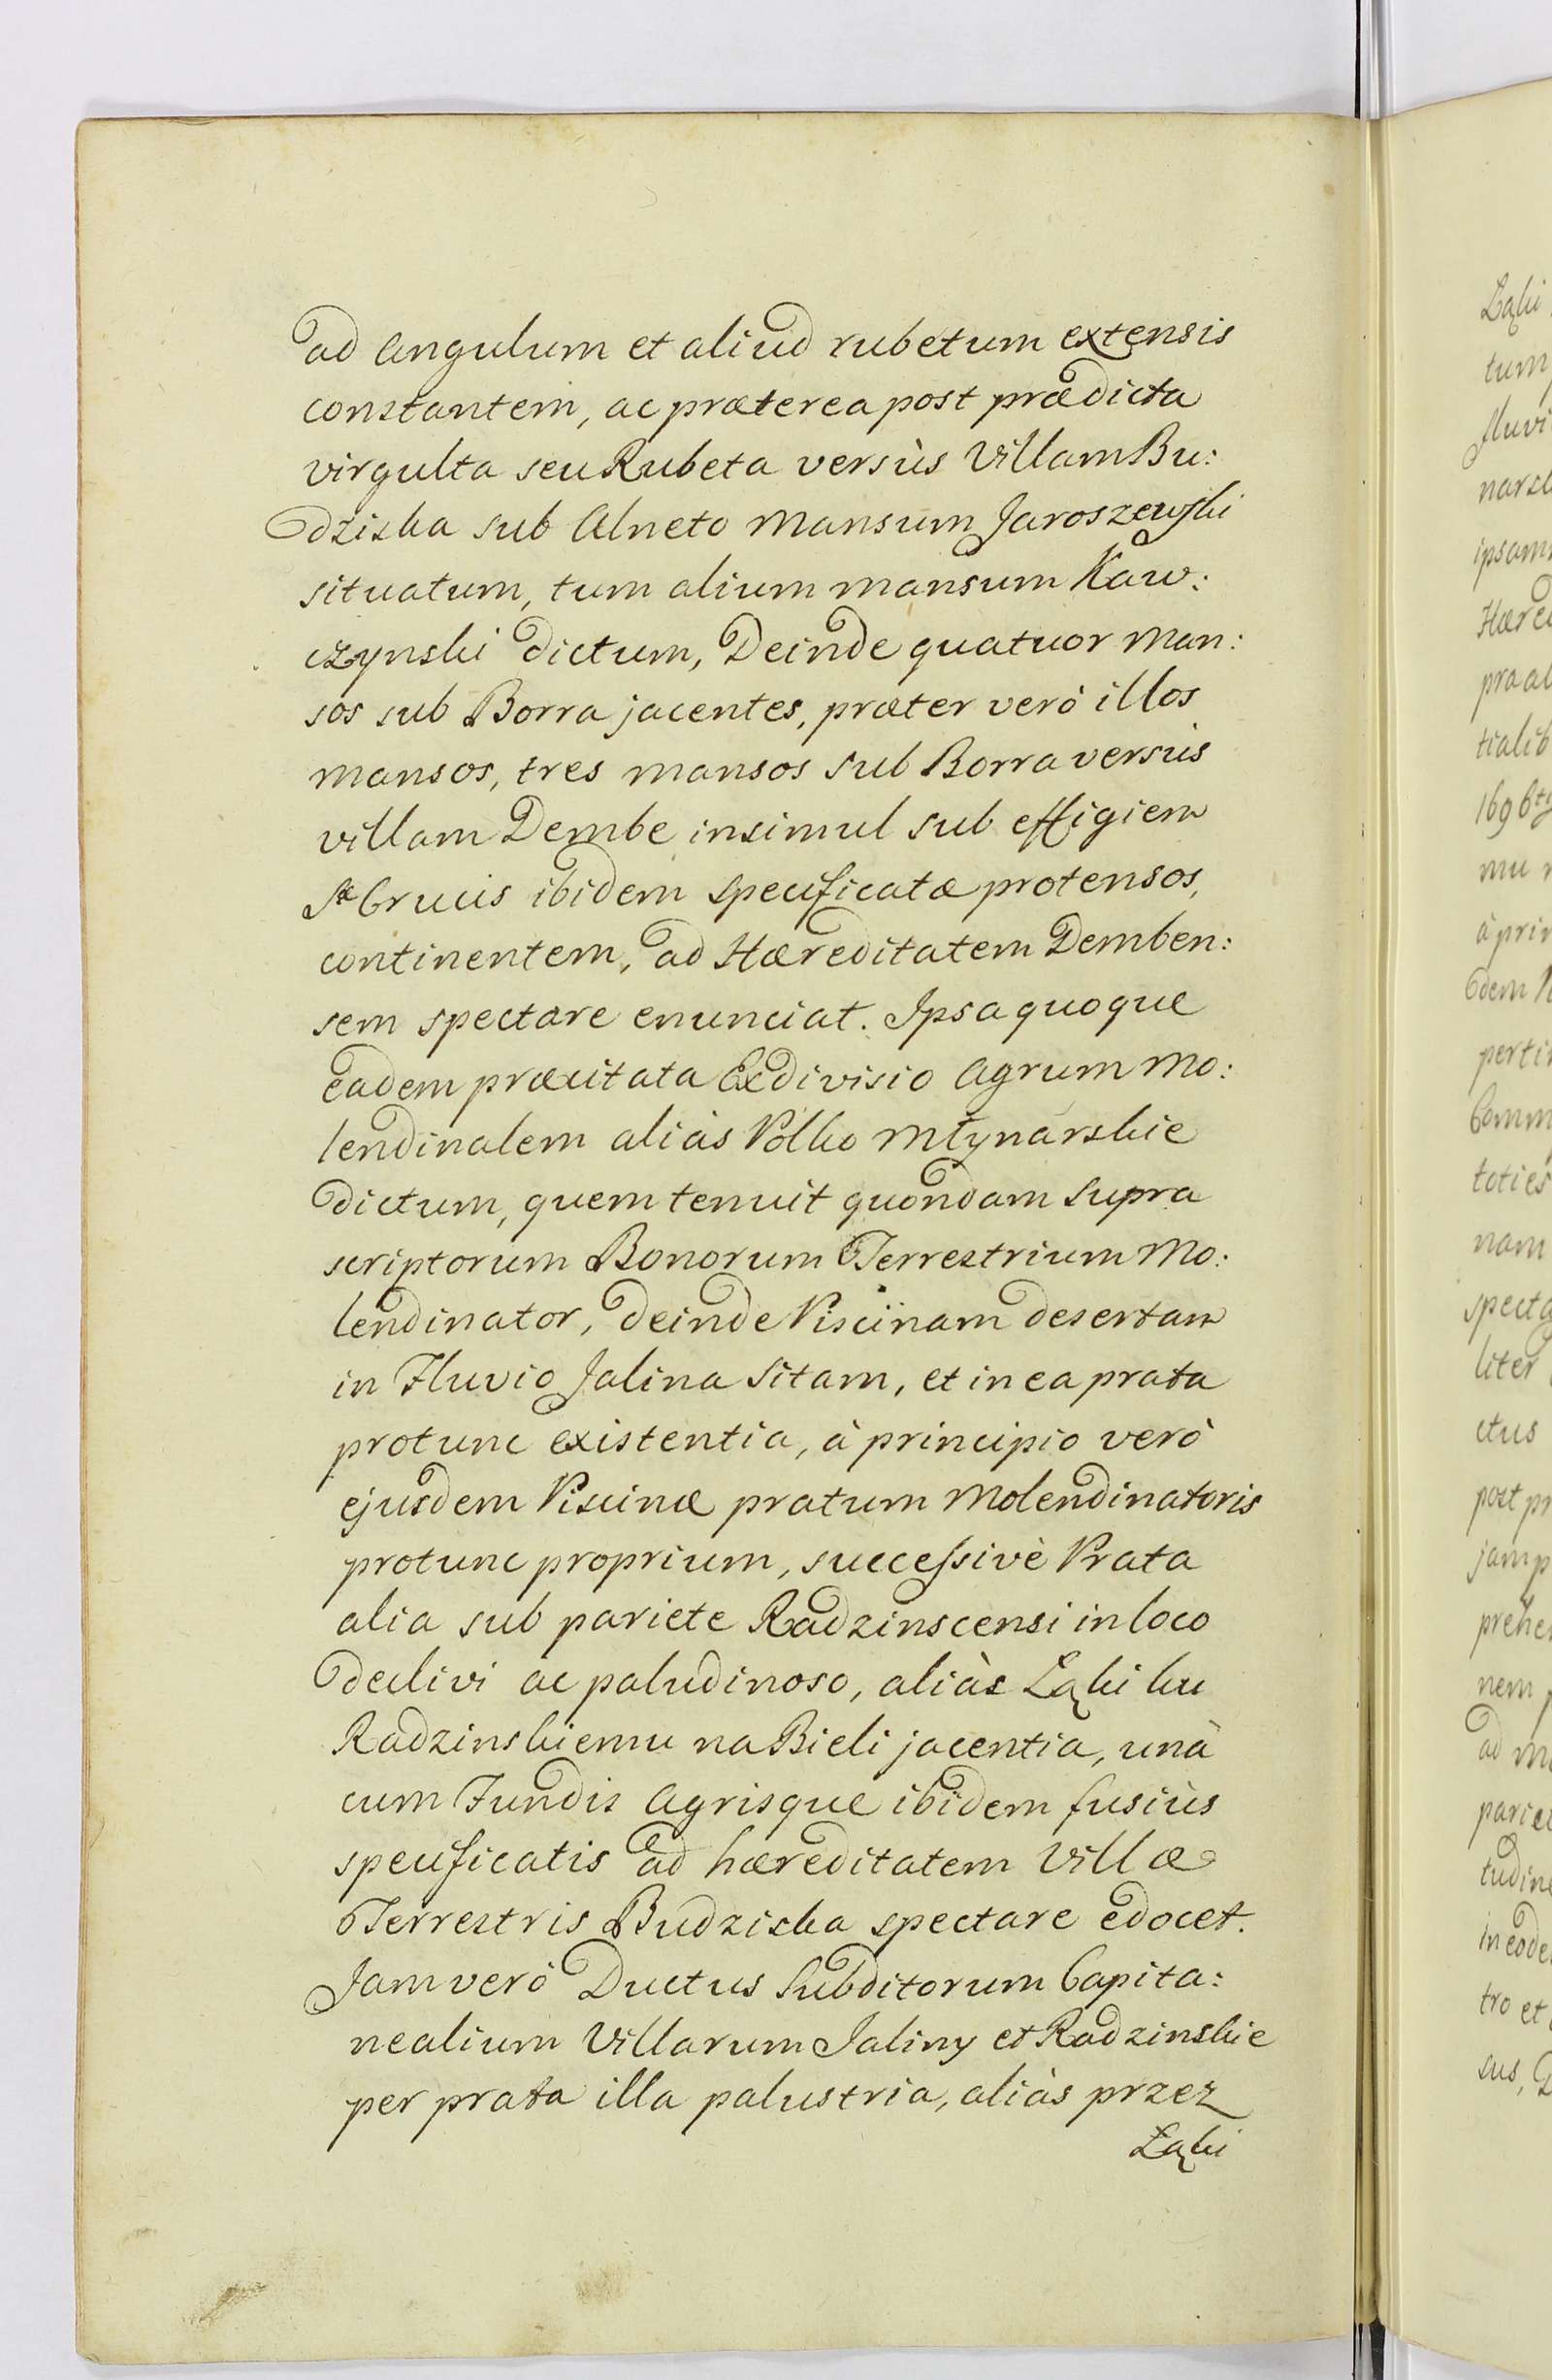 ad Angulum et aliud rubetum extensis
constantem, ac præterea post prædicta
virgulta seu Rubeta versùs Villam Bu:
dziska sub Alneto Mansum Jaroszewski
situatum, tum alium mansum Kaw:
czynski dictum, Deinde quatuor Man:
sos sub Borra jacentes, præter verò illos
Mansos, tres mansos sub Borra versùs
villam Dembe insimul sub effigiem
Sæ Crucis ibidem specificatæ protensos,
continentem, ad Hæreditatem Demben:
sem spectare enunciat. Ipsa quoque
eadem præcitata Exdivisio Agrum Mo:
lendinalem aliàs Pólko Młynarskie
dictum, quem tenuit quondam supra
scriptorum Bonorum Terrestrium Mo:
lendinator, deinde Piscinam desertam
in Fluvio Jalina sitam, et in ea prata
protunc existentia, à principio verò
ejusdem Piscinæ pratum Molendinatoris
protunc proprium, successivè Prata
alia sub pariete Radzinscensi in loco
declivi ac paludinoso, aliàs Łąki ku
Radzinskiemu na Bieli jacentia, unà
cum Fundis Agrisque ibidem fusiùs
specificatis ad hæreditatem Villæ
Terrestris Budziska spectare edocet.
Jam verò Ductus Subditorum Capita:
nealium Villarum Jaliny et Radzinskie
per prata illa palustria, aliàs przez
Łąki